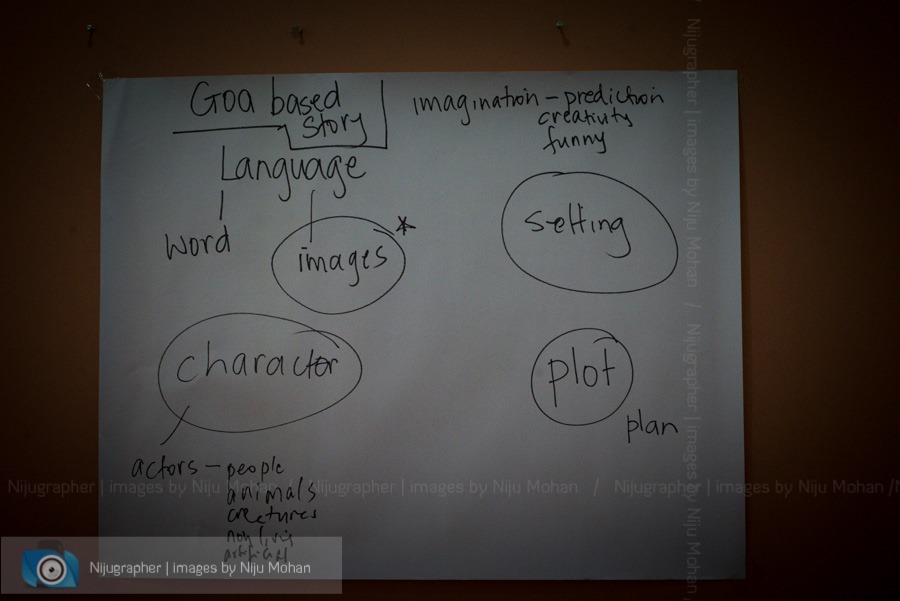 Goa based
Story
Language
word
images *
imagination – prediction
creativity
funny
setting
charactor
actors – people
animals
creatures
non living
artificial
plot
plan
Nijugrapher | images by Niju Mohan / Nijugrapher | images by Niju Mohan / Nijugrapher | images by Niju Mohan /
/ Nijugrapher | images by Niju Mohan / Nijugrapher | images by Niju Mohan /
Nijugrapher | images by Niju Mohan